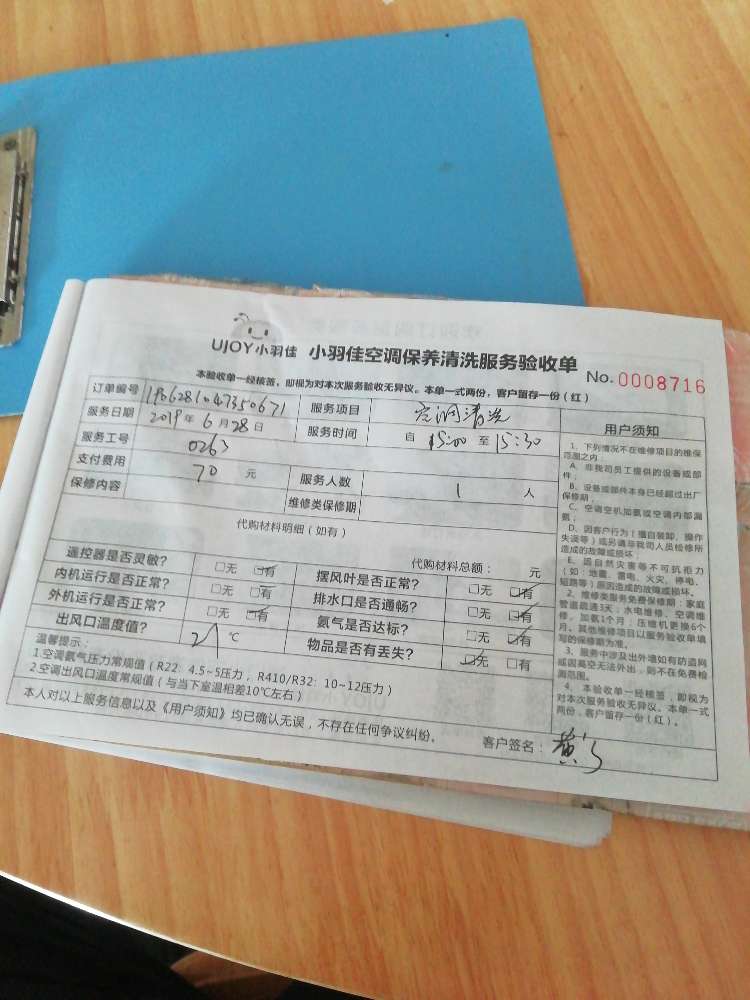 UJOY小羽佳 小羽佳空调保养清洗服务验收单 No. 0008716
本验收单一经核签，即视为对本次服务验收无异议。本单一式两份，客户留存一份（红）
订单编号 服务项目 空调清洗
服务日期 2019年6月28日 服务时间 自 15:00 至 15:30
服务工号 0263
支付费用 70 元 服务人数 1 人
保修内容 维修类保修期
代购材料明细（如有）
代购材料总额： 元
遥控器是否灵敏？ □无 □有 摆风叶是否正常？ □无 □有
内机运行是否正常？ □无 □有 排水口是否通畅？ □无 □有
外机运行是否正常？ □无 □有 氨气是否达标？ □无 □有
出风口温度值？ ℃ 物品是否有丢失？ □无 □有
温馨提示：
1.空调氨气压力常规值（R22：4.5~5压力，R410/R32：10~12压力）
2.空调出风口温度常规值（与当下室温相差10℃左右）
本人对以上服务信息以及《用户须知》均已确认无误，不存在任何争议纠纷。
客户签名：黄
用户须知
1、下列情况不在维修项目的维保
范围之内：
A、非我司员工提供的设备或部
件；
B、设备或部件本身已经超过出厂
保修期；
C、空调空机加氨或空调内部漏
氨；
D、因客户行为（擅自装卸、操作
失误等）或另请非我司人员检修所
造成的故障或损坏；
E、遇自然灾害等不可抗拒力
（如：地震、雷电、火灾、停电、
短路等）原因造成的故障或损坏。
2、维修类服务免费保修期：家庭
管道疏通3天；水电维修、空调维
修，加氨1个月；压缩机更换6个
月。其他维修项目以服务验收单填
写的保修期为准。
3、服务中涉及出外墙如有防盗网
或因高空无法外出，则不在免费检
测范围。
4、本验收单一经核签，即视为
对本次服务验收无异议。本单一式
两份，客户留存一份（红）。